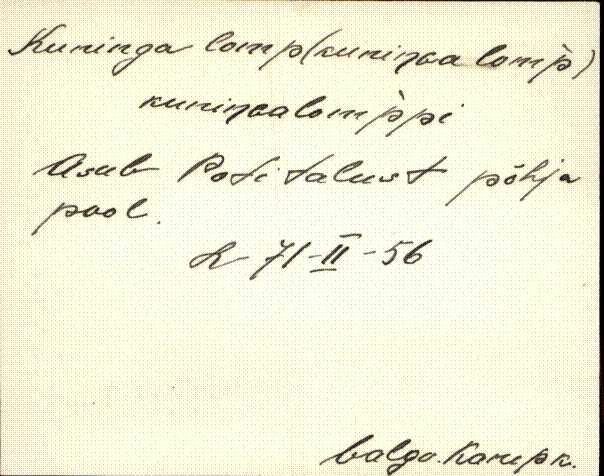 Kuninga lomp (kuniṇɢa lomp̀)
kuniṇɢalomp̀pi
Asub Poti talust põhja
pool.
L 71-II-56
Valga. Karepk.